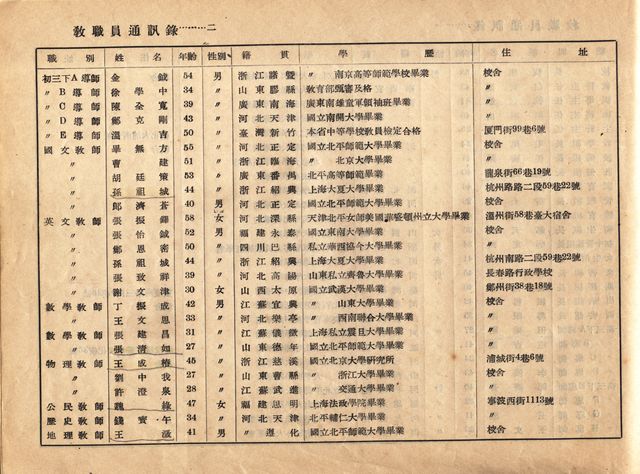 教職員通訊錄………二
職別 姓名 年齡 性別 籍貫 學歷 住址
初三下A導師 金鉞 54 男 浙江諸暨 〃 南京高等師範學校畢業 校舍
〃 B 導師 徐學中 34 〃 山東膠縣 教育部甄審及格 〃
〃 C 導師 陳全寬 39 〃 廣東南海 廣東南雄童軍領袖班畢業 〃
〃 D 導師 鄭克剛 43 〃 河北天津 國立南開大學畢業 〃
〃 E 導師 溫吉 50 〃 臺灣新竹 本省中等學校教員檢定合格 厦門街99巷6號
國文教師 畢無方 45 〃 河北正定 國立北平師範大學畢業 校舍
〃 曹建 51 〃 浙江臨海 〃 北京大學畢業 〃
〃 胡廷 53 〃 廣東番禺 北平高等師範畢業 龍泉街66巷19號
〃 孫祖城 44 〃 浙江紹興 上海大夏大學畢業 杭州路路二段59巷22號
〃 鄭濟荃 40 男 河北正定 國立北平師範大學畢業 校舍
英文教師 張振鐸 58 〃 河北深縣 天津北平女師美國華盛頓州立大學畢業 溫州街58巷臺大宿舍
〃 張怡誠 52 〃 福建永泰 國立東南大學畢業 校舍
〃 鄭恩密 50 〃 四川巴縣 私立華西協合大學畢業 〃
〃 孫祖城 44 〃 浙江紹興 上海大夏大學畢業 杭州南路二段59巷22號
〃 張致祥 39 〃 河北高陽 山東私立齊魯大學畢業 長春路行政學校
〃 謝文津 30 女 山西太原 國立武漢大學畢業 鄭州街38巷18號
數學教師 丁振成 42 男 江蘇宜興 〃 山東大學畢業 校舍
〃 王文思 33 〃 河北樂亭 〃 西南聯合大學畢業 〃
數學教師 張建昌 31 〃 江蘇儀徵 上海私立震旦大學畢業 〃
〃 張清如 27 〃 山東德平 國立北平師範大學畢業 〃
物理教師 王成椿 45 〃 浙江慈溪 國立北京大學研究所 浦城街4巷6號
〃 劉中我 27 〃 山東 〃 〃 浙江大學畢業 校舍
〃 許澄泉 28 〃 江蘇武進 〃 交通大學畢業 〃
公民教師 魏綠 47 女 福建思明 上海法政學院畢業 寧波西街1113號
歷史教師 錢寶午 34 〃 河北天津 北平輔仁大學畢業 〃
地理教師 王 41 男 〃 遵化 國立北平師範大學畢業 校舍